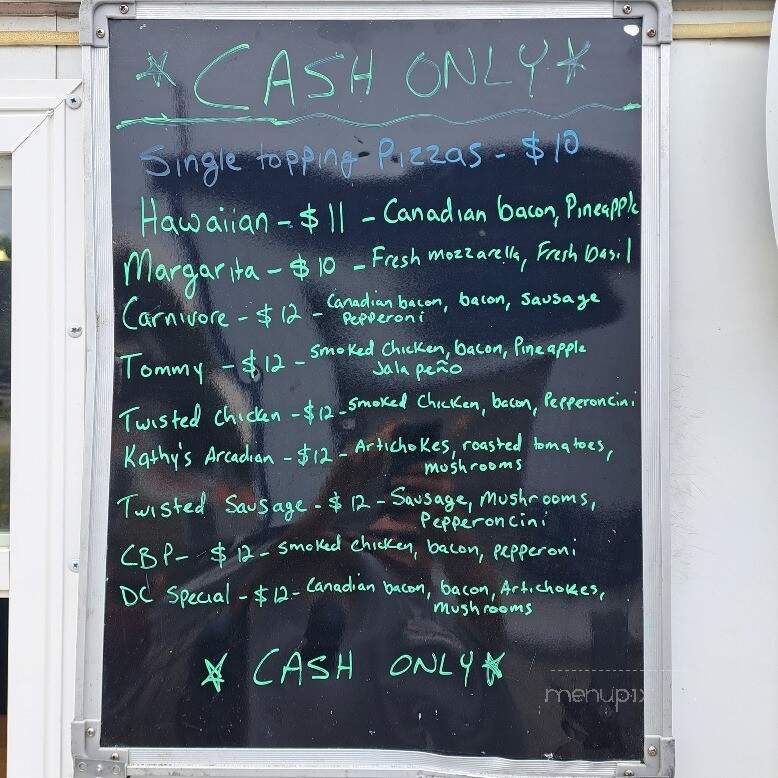 CASH ONLY
Single topping Pizzas - $10
Hawaiian - $11 - Canadian bacon, Pineapple
Margarita - $10 - Fresh mozzarella, Fresh basil
Carnivore - $12 - Canadian bacon, bacon, sausage
Pepperoni
Tommy - $12 - smoked chicken, bacon, Pineapple
Jalapeño
Twisted chicken - $12 - smoked chicken, bacon, Pepperoncini
Kathy's Arcadian - $12 - Artichokes, roasted tomatoes,
mushrooms
Twisted Sausage - $12 - Sausage, Mushrooms,
Pepperoncini
CBP - $12 - smoked chicken, bacon, pepperoni
DC Special - $12 - Canadian bacon, bacon, Artichokes,
mushrooms
CASH ONLY
menupix